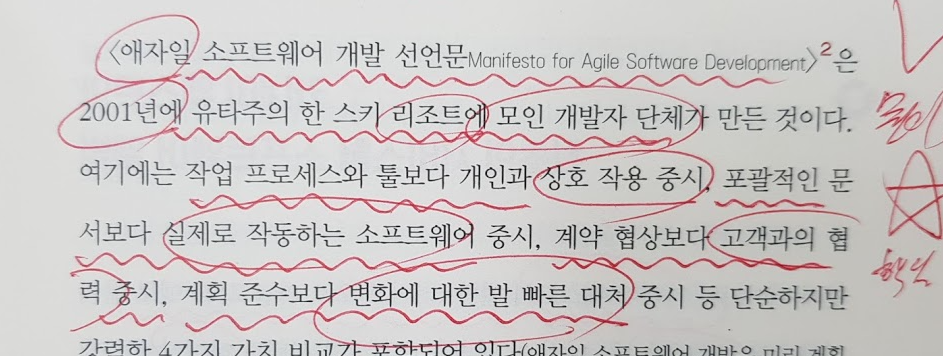 〈애자일 소프트웨어 개발 선언문Manifesto for Agile Software Development〉2은
2001년에 유타주의 한 스키 리조트에 모인 개발자 단체가 만든 것이다.
여기에는 작업 프로세스와 툴보다 개인과 상호 작용 중시, 포괄적인 문
서보다 실제로 작동하는 소프트웨어 중시, 계약 협상보다 고객과의 협
력 중시, 계획 준수보다 변화에 대한 발 빠른 대처 중시 등 단순하지만
강력한 4가지 가치 비교가 포함되어 있다(애자일 소프트웨어 개발은 미리 계획